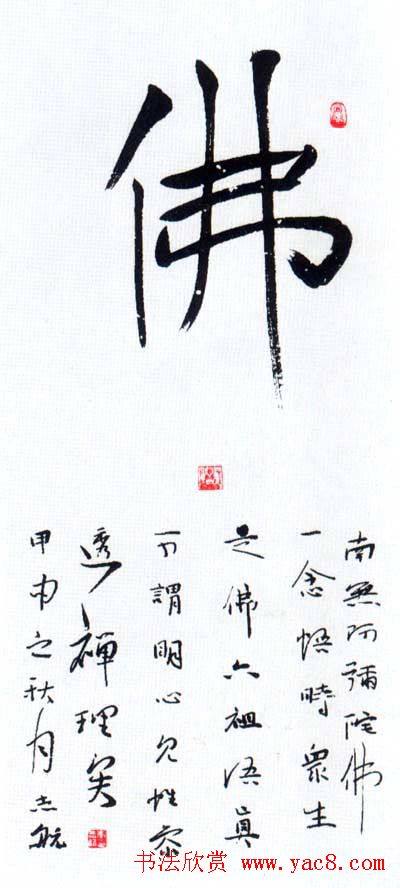 佛
南無阿彌陀佛
一念悟時眾生
是佛六祖语真
可謂明心見性参
透禪理矣
甲申之秋月志航
书法欣赏 www.yac8.com